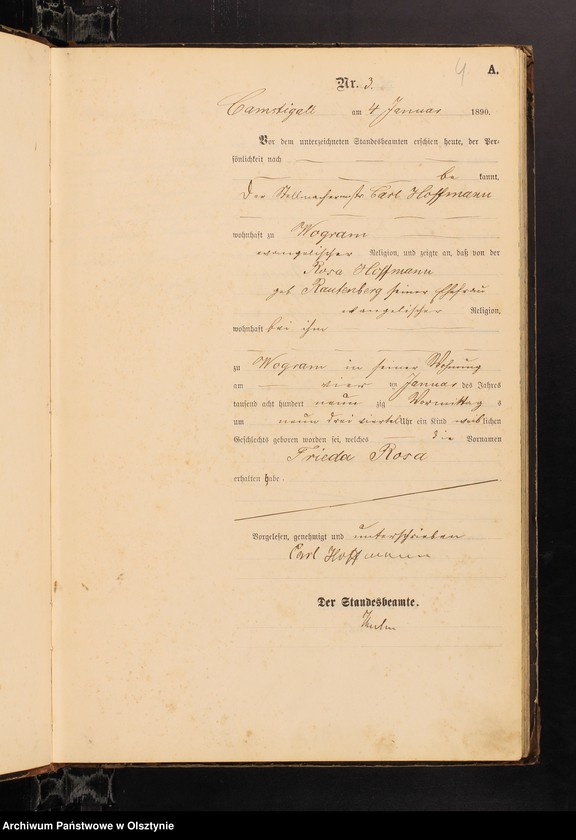 4 A.
Nr. 3.
Camstigall am 4 Januar 1890.
Vor dem unterzeichneten Standesbeamten erschien heute, der Per-
sönlichkeit nach
be kannt,
Der Stellmachermstr Carl Hoffmann
wohnhaft zu Wogram
evangelischer Religion, und zeigte an, daß von der
Rosa Hoffmann
geb Rautenberg seiner Ehefrau
evangelischer Religion,
wohnhaft bei ihm
zu Wogram in seiner Wohnung
am vier ten Januar des Jahres
tausend acht hundert neun zig Vormittag s
um neun drei viertel Uhr ein Kind weiblichen
Geschlechts geboren worden sei, welches die Vornamen
Frieda Rosa
erhalten habe
Vorgelesen, genehmigt und unterschrieben
Carl Hoffmann
Der Standesbeamte.
Archiwum Państwowe w Olsztynie